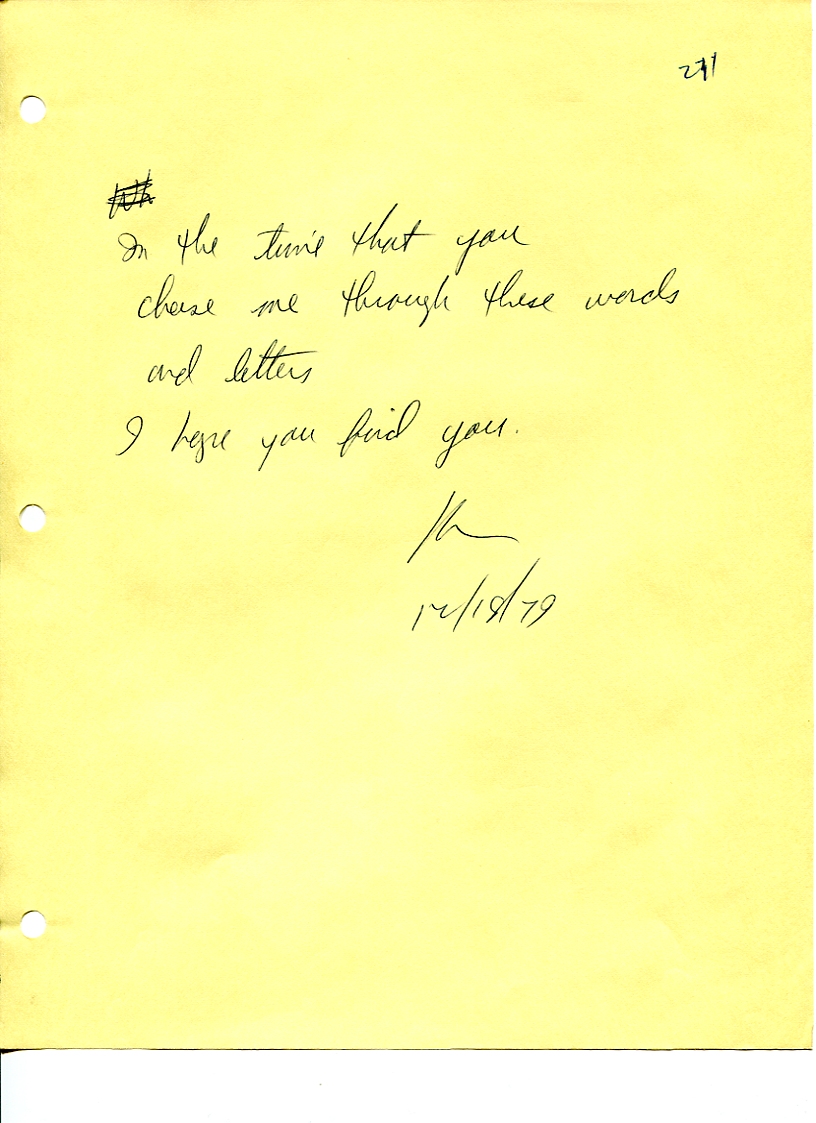 271
In the time that you
chase me through these words
and letters
I hope you find you.
12/18/79